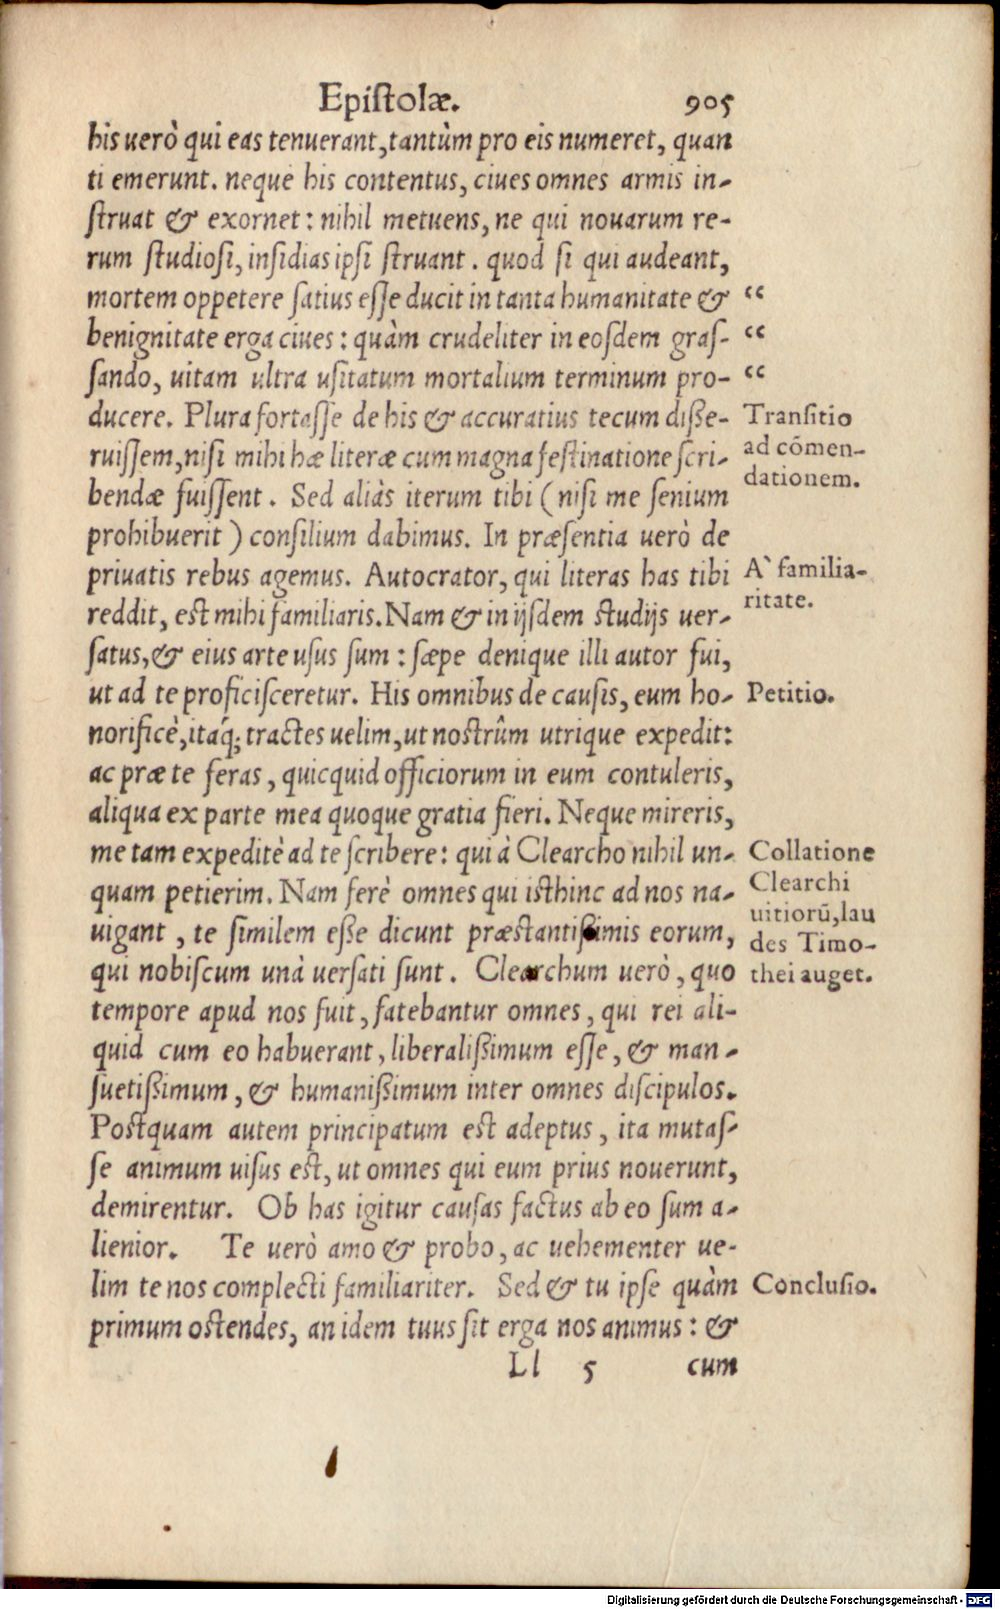 Epistolæ. 905
his uerò qui eas tenuerant, tantùm pro eis numeret, quan
ti emerunt. neque his contentus, ciues omnes armis in-
struat & exornet: nihil metuens, ne qui nouarum re-
rum studiosi, insidias ipsi struant. quod si qui audeant,
mortem oppetere satius esse ducit in tanta humanitate & “
benignitate erga ciues: quàm crudeliter in eosdem gras- “
sando, uitam ultra usitatum mortalium terminum pro- “
ducere. Plura fortasse de his & accuratius tecum disse-
ruissem, nisi mihi hæ literæ cum magna festinatione scri-
bendæ fuissent. Sed aliàs iterum tibi (nisi me senium
prohibuerit) consilium dabimus. In præsentia uerò de
priuatis rebus agemus. Autocrator, qui literas has tibi
reddit, est mihi familiaris. Nam & in ijsdem studijs uer-
satus, & eius arte usus sum: sæpe denique illi autor fui,
ut ad te proficisceretur. His omnibus de causis, eum ho-
norificè, itaq́; tractes uelim, ut nostrûm utrique expedit:
ac præ te feras, quicquid officiorum in eum contuleris,
aliqua ex parte mea quoque gratia fieri. Neque mireris,
me tam expeditè ad te scribere: qui à Clearcho nihil un-
quam petierim. Nam ferè omnes qui isthinc ad nos na-
uigant, te similem esse dicunt præstantissimis eorum,
qui nobiscum unà uersati sunt. Clearchum uerò, quo
tempore apud nos fuit, fatebantur omnes, qui rei ali-
quid cum eo habuerant, liberalissimum esse, & man-
suetissimum, & humanissimum inter omnes discipulos.
Postquam autem principatum est adeptus, ita mutas-
se animum uisus est, ut omnes qui eum prius nouerunt,
demirentur. Ob has igitur causas factus ab eo sum a-
lienior. Te uerò amo & probo, ac uehementer ue-
lim te nos complecti familiariter. Sed & tu ipse quàm
primum ostendes, an idem tuus sit erga nos animus: &
Ll 5 cum
Transitio
ad cōmen-
dationem.
A` familia-
ritate.
Petitio.
Collatione
Clearchi
uitiorū, lau
des Timo-
thei auget.
Conclusio.
Digitalisierung gefördert durch die Deutsche Forschungsgemeinschaft - DFG